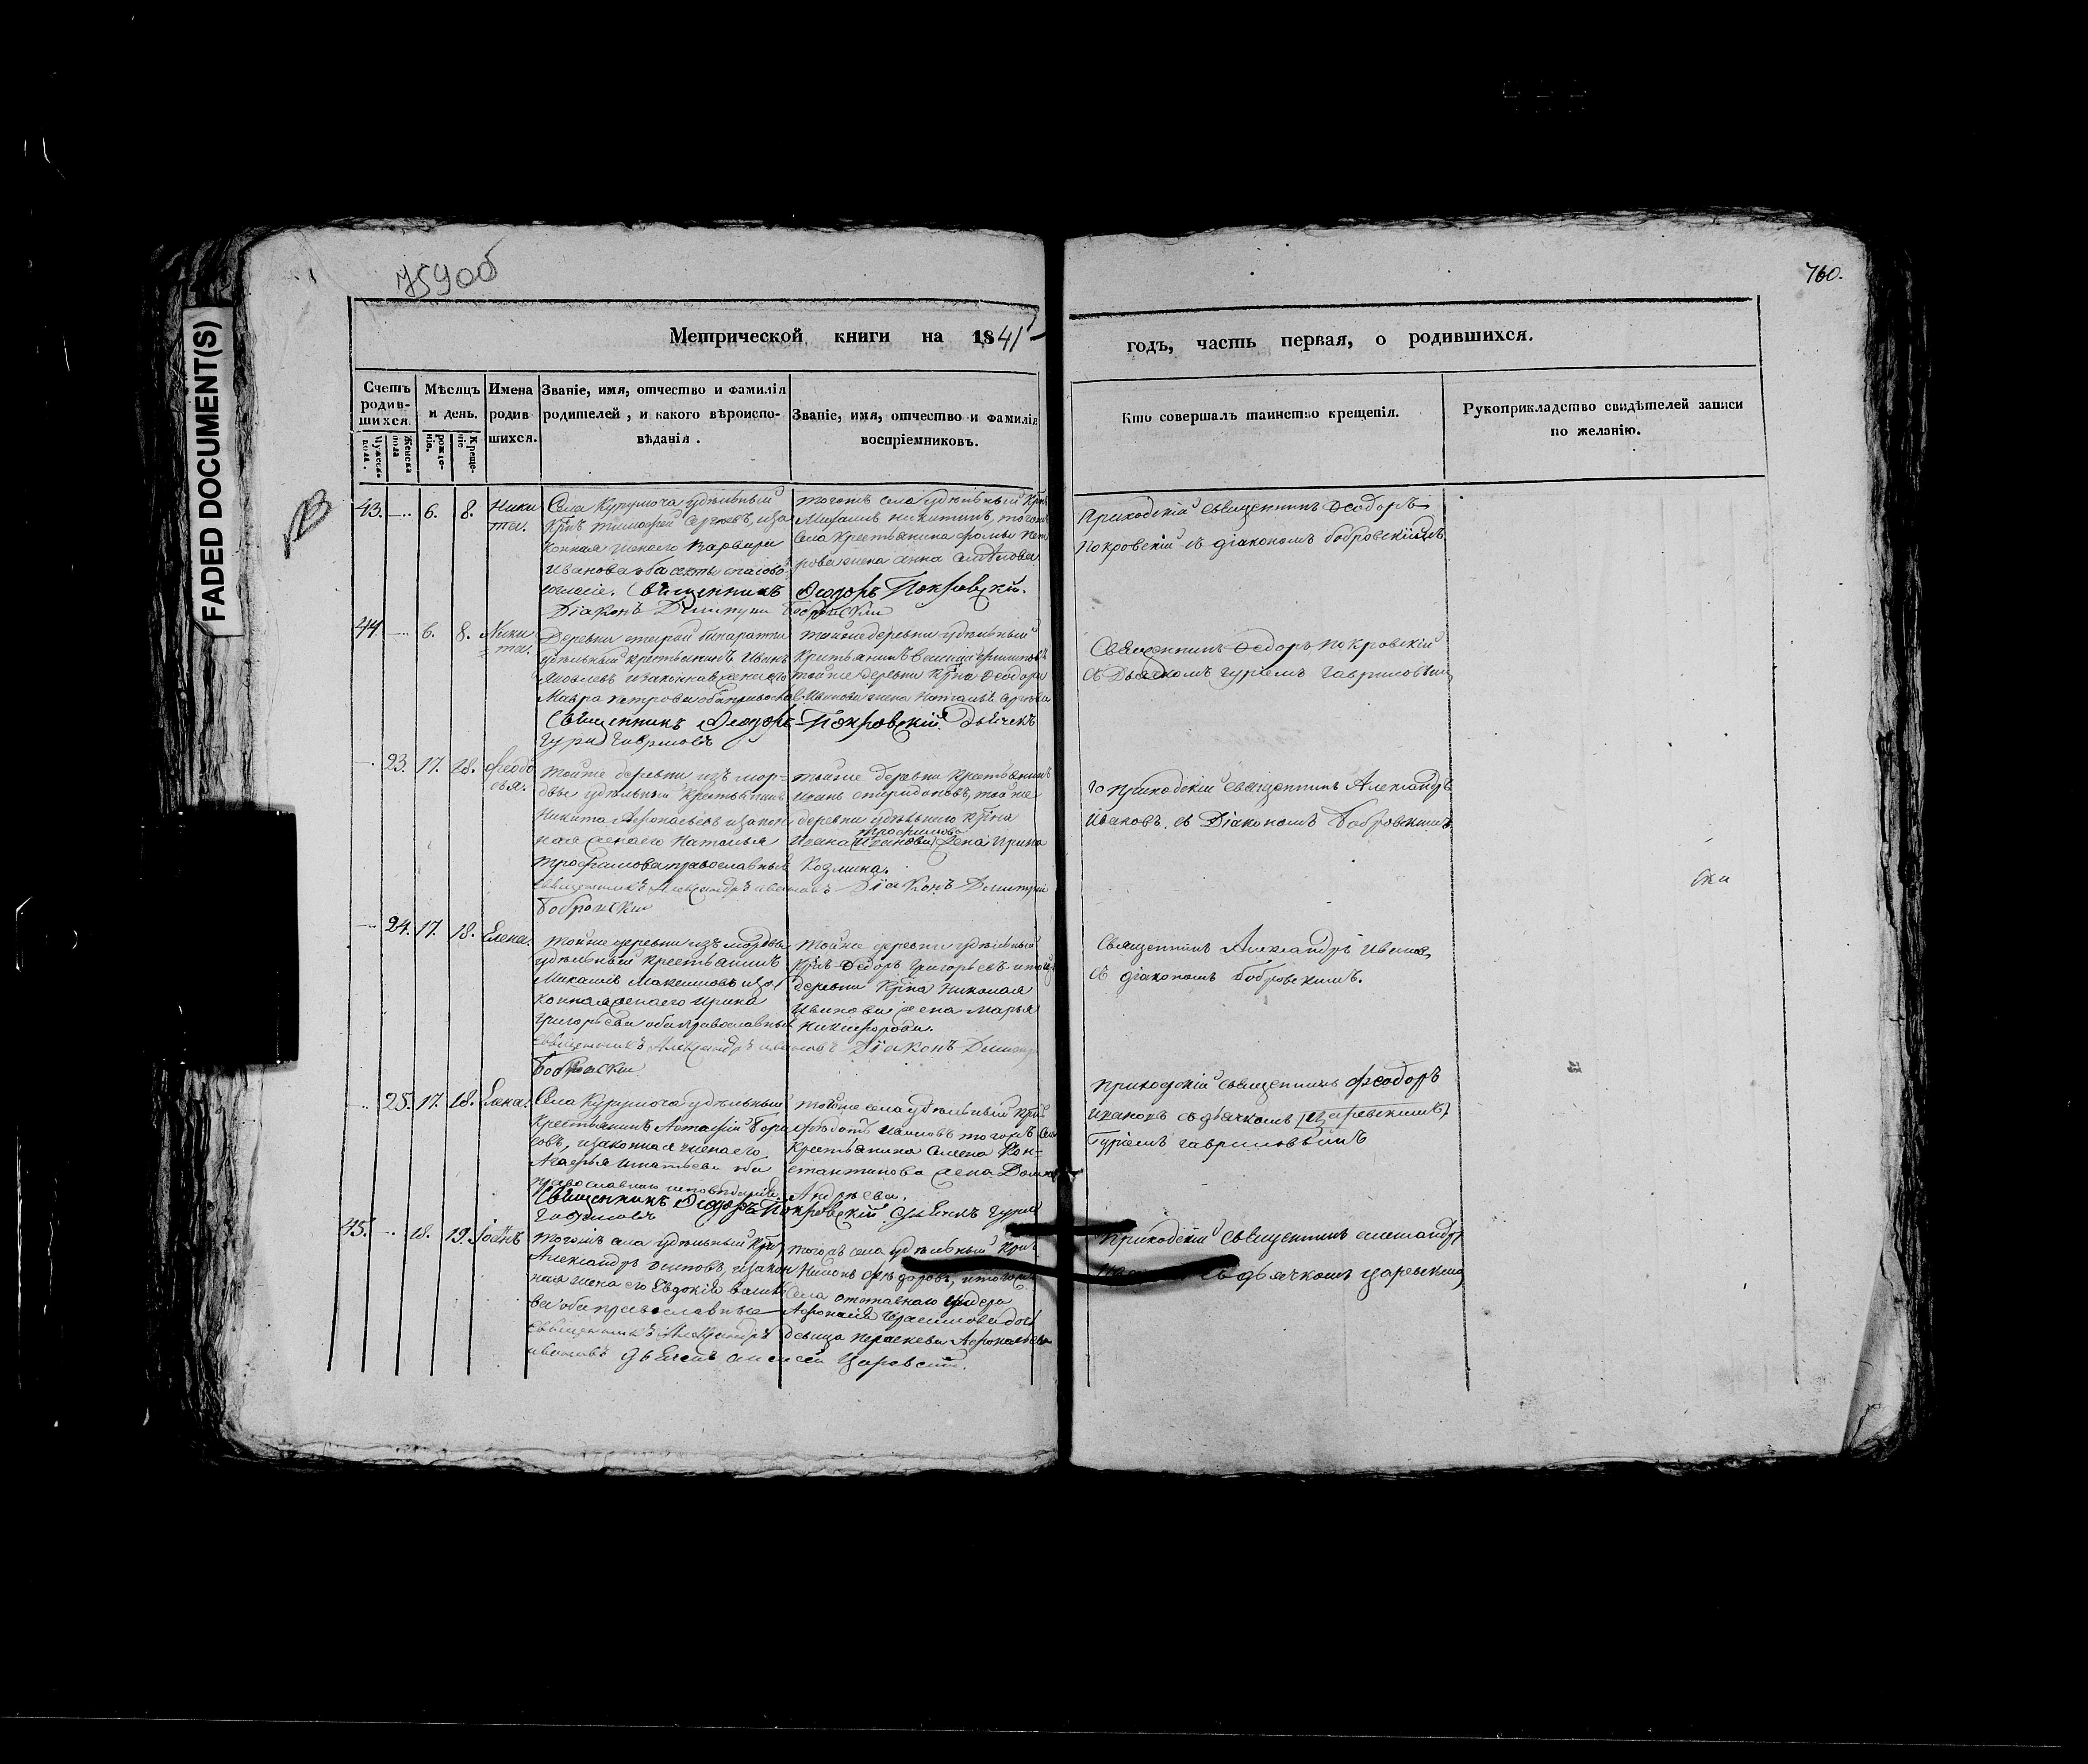 FADED DOCUMENT(S)
759об
760.
Метрической книги на 1841
годъ, часть первая, о родившихся.
Счетъ родив-шихся.
Мужеска пола.
Женска пола
Мѣсяцъ и день.
рожде-нія.
Креще-ніе
Имена родив шихся.
Званіе, имя, отчество и фамилія
родителей, и какого вѣроиспо-
вѣданія.
Званіе, имя, отчество и фамилія
воспріемниковъ.
Кто совершалъ таинство крещенія.
Рукоприкладство свидѣтелей записи
по желанію.
43. 6. 8. Ники
та.
Села Курумоча удѣльный
Крнъ Тимофей Сергѣевъ, иза
конная жена его Варвара
Иванова оба секты спасова
согласія. Священникъ
Діаконъ Димитрий
тогожъ села удѣльный Крнъ
Михаилъ Никитинъ, тогожъ
села крестьянина Фомы Пет
рова жена Анна
Ѳеодоръ Покровскій.
Бобровскій
Приходскій священникъ Ѳеодоръ
Покровскій съ діакономъ Бобровскимъ
44. 6. 8. Ники
та.
Деревни
удѣльный крестьянинъ Иванъ
Яковлевъ изаконная жена его
Мавра Петрова оба православ
Священникъ Ѳеодоръ
Гурій Гавриловъ
тойже деревни удѣльный
Крестьянинъ
тойже деревни Крна Ѳеодора
Иванова жена Наталья Сергѣева
Покровскій. Дьячекъ
Священникъ Ѳедоръ Покровскій
съ Дьячкомъ Гуріемъ Гавриловымъ
23. 17. 18. Феодо
сья.
тойже деревни изъ мор-
двы удѣльный Крестьянинъ
Никита Афонасьевъ изакон
ная жена его Наталья
Трофимова православныя
Священникъ Александръ Ивановъ
Бобровскій
тойже деревни крестьянинъ
Иванъ Спиридоновъ, тойже
деревни удѣльнаго Крна
Трофимова
Ивана (Иванова) жена Ирина
Козмина.
Діаконъ Димитрій
Приходскій священникъ Александръ
Ивановъ, съ Діакономъ Бобровскимъ
24. 17. 18. Елена.
тойже деревни изъ мордвы
удѣльный крестьянинъ
Михаилъ Максимовъ иза
конная жена его Ирина
Григорьева оба православныя
Священникъ Александръ Ивановъ
Бобровскій
тойже деревни удѣльный
Крнъ Ѳедоръ Григорьевъ итой
деревни Крна Николая
Иванова жена Марья
Никифорова.
Діаконъ Димитр
Священникъ Александръ Ивановъ
съ діакономъ Бобровскимъ.
25. 17. 18. Елена.
Села Курумоча удѣльный
Крестьянинъ Астафій Бори
совъ, изаконная жена его
Агафья Игнатьева оба
православнаго исповѣданія.
Священникъ Ѳеодоръ
Гавриловъ
тогоже села удѣльный крнъ
Ѳедотъ Ивановъ тогожъ села
Крестьянина Семена Кон-
стантинова жена Домна
Андрѣева.
Покровскій Дьячекъ Гурій
Приходскій священникъ Феодоръ
Ивановъ съ дьячкомъ (Царевскимъ)
Гуріемъ Гавриловымъ
45. 18. 19. Іоаннъ
тогожъ села удѣльный Крн,
Александръ Осиповъ, изакон
ная жена его Евдокія Василь
ва оба православные
Священникъ Александръ
Ивановъ Дьячекъ Алексей Царевскій.
тогожъ села удѣльный Крнъ
Филипъ Ѳедоровъ, итогожъ
села отставнаго ундера
Афонасія Герасимова доч
девица Параскева Афонасьева
Приходскій священникъ Александръ
съ дьячкомъ Царевскимъ